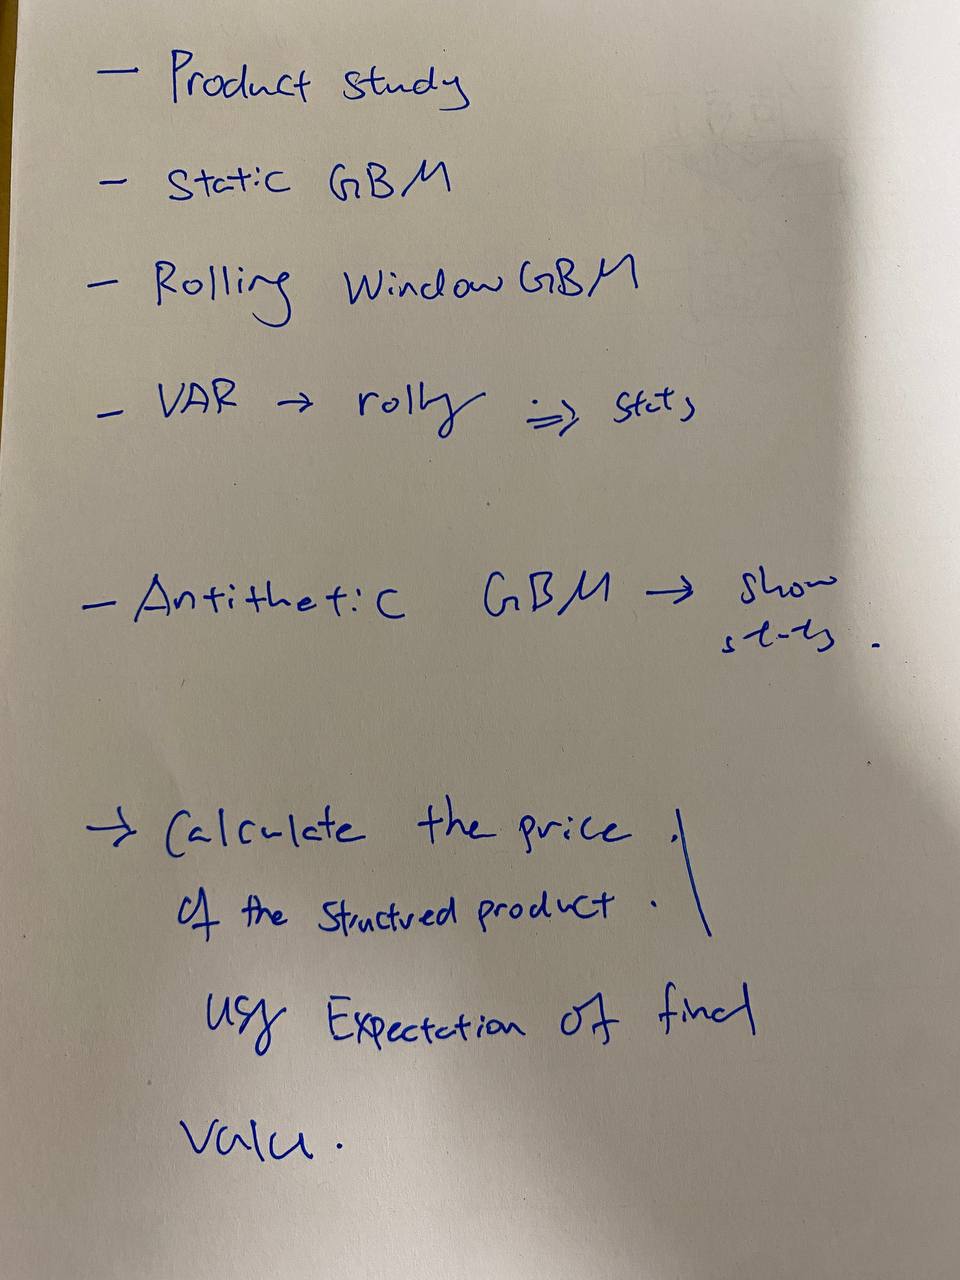 - Product study
- Static GBM
- Rolling Window GBM
- VAR → rolly ⇒ stats
- Antithetic GBM → show
stats.
→ Calculate the price
of the structured product.
using Expectation of final
value.